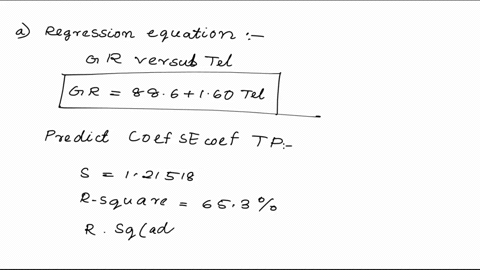 a) Regression equation :-
GR versus Tel
GR = 88.6+1.60 Tel
Predict Coef SE coef TP:-
S = 1.21518
R-square = 65.3%
R. Sq(ad